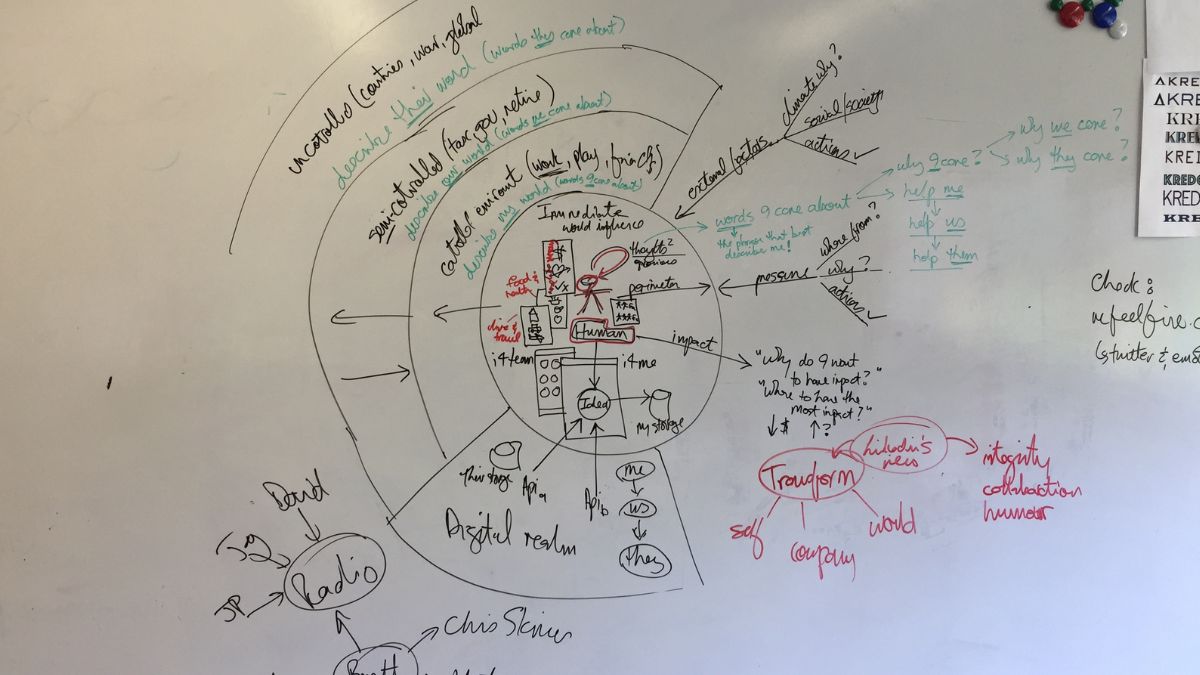 uncotrolled (countries, war, global
describe their world (words they care about)
semi-controlled (tax, gov, retire)
describe our world (words we care about)
(work, play, friends)
describe my world (words I care about)
Immediate
world influence
thoughts?
food &
health
perimeter
Human
impact
i4team
i4me
Idea
my storage
Api a
Api b
Digital realm
me
us
they
external factors
climate why?
social/society
actions ✓
words I care about
the person that best
describe me!
why I care?
why we care?
why they care?
help me
help us
help them
pressure
where from?
why?
actions ✓
"Why do I want
to have impact?"
"Where to have the
most impact?"
↓$ ↑?
Transform
self
company
world
integrity
collaboction
humour
David
Jag
JP
Radio
Brett
Chris Skinner
Check:
AKRE
AKRE
KRE
KRE
KREI
KREDO
KRED
KRE